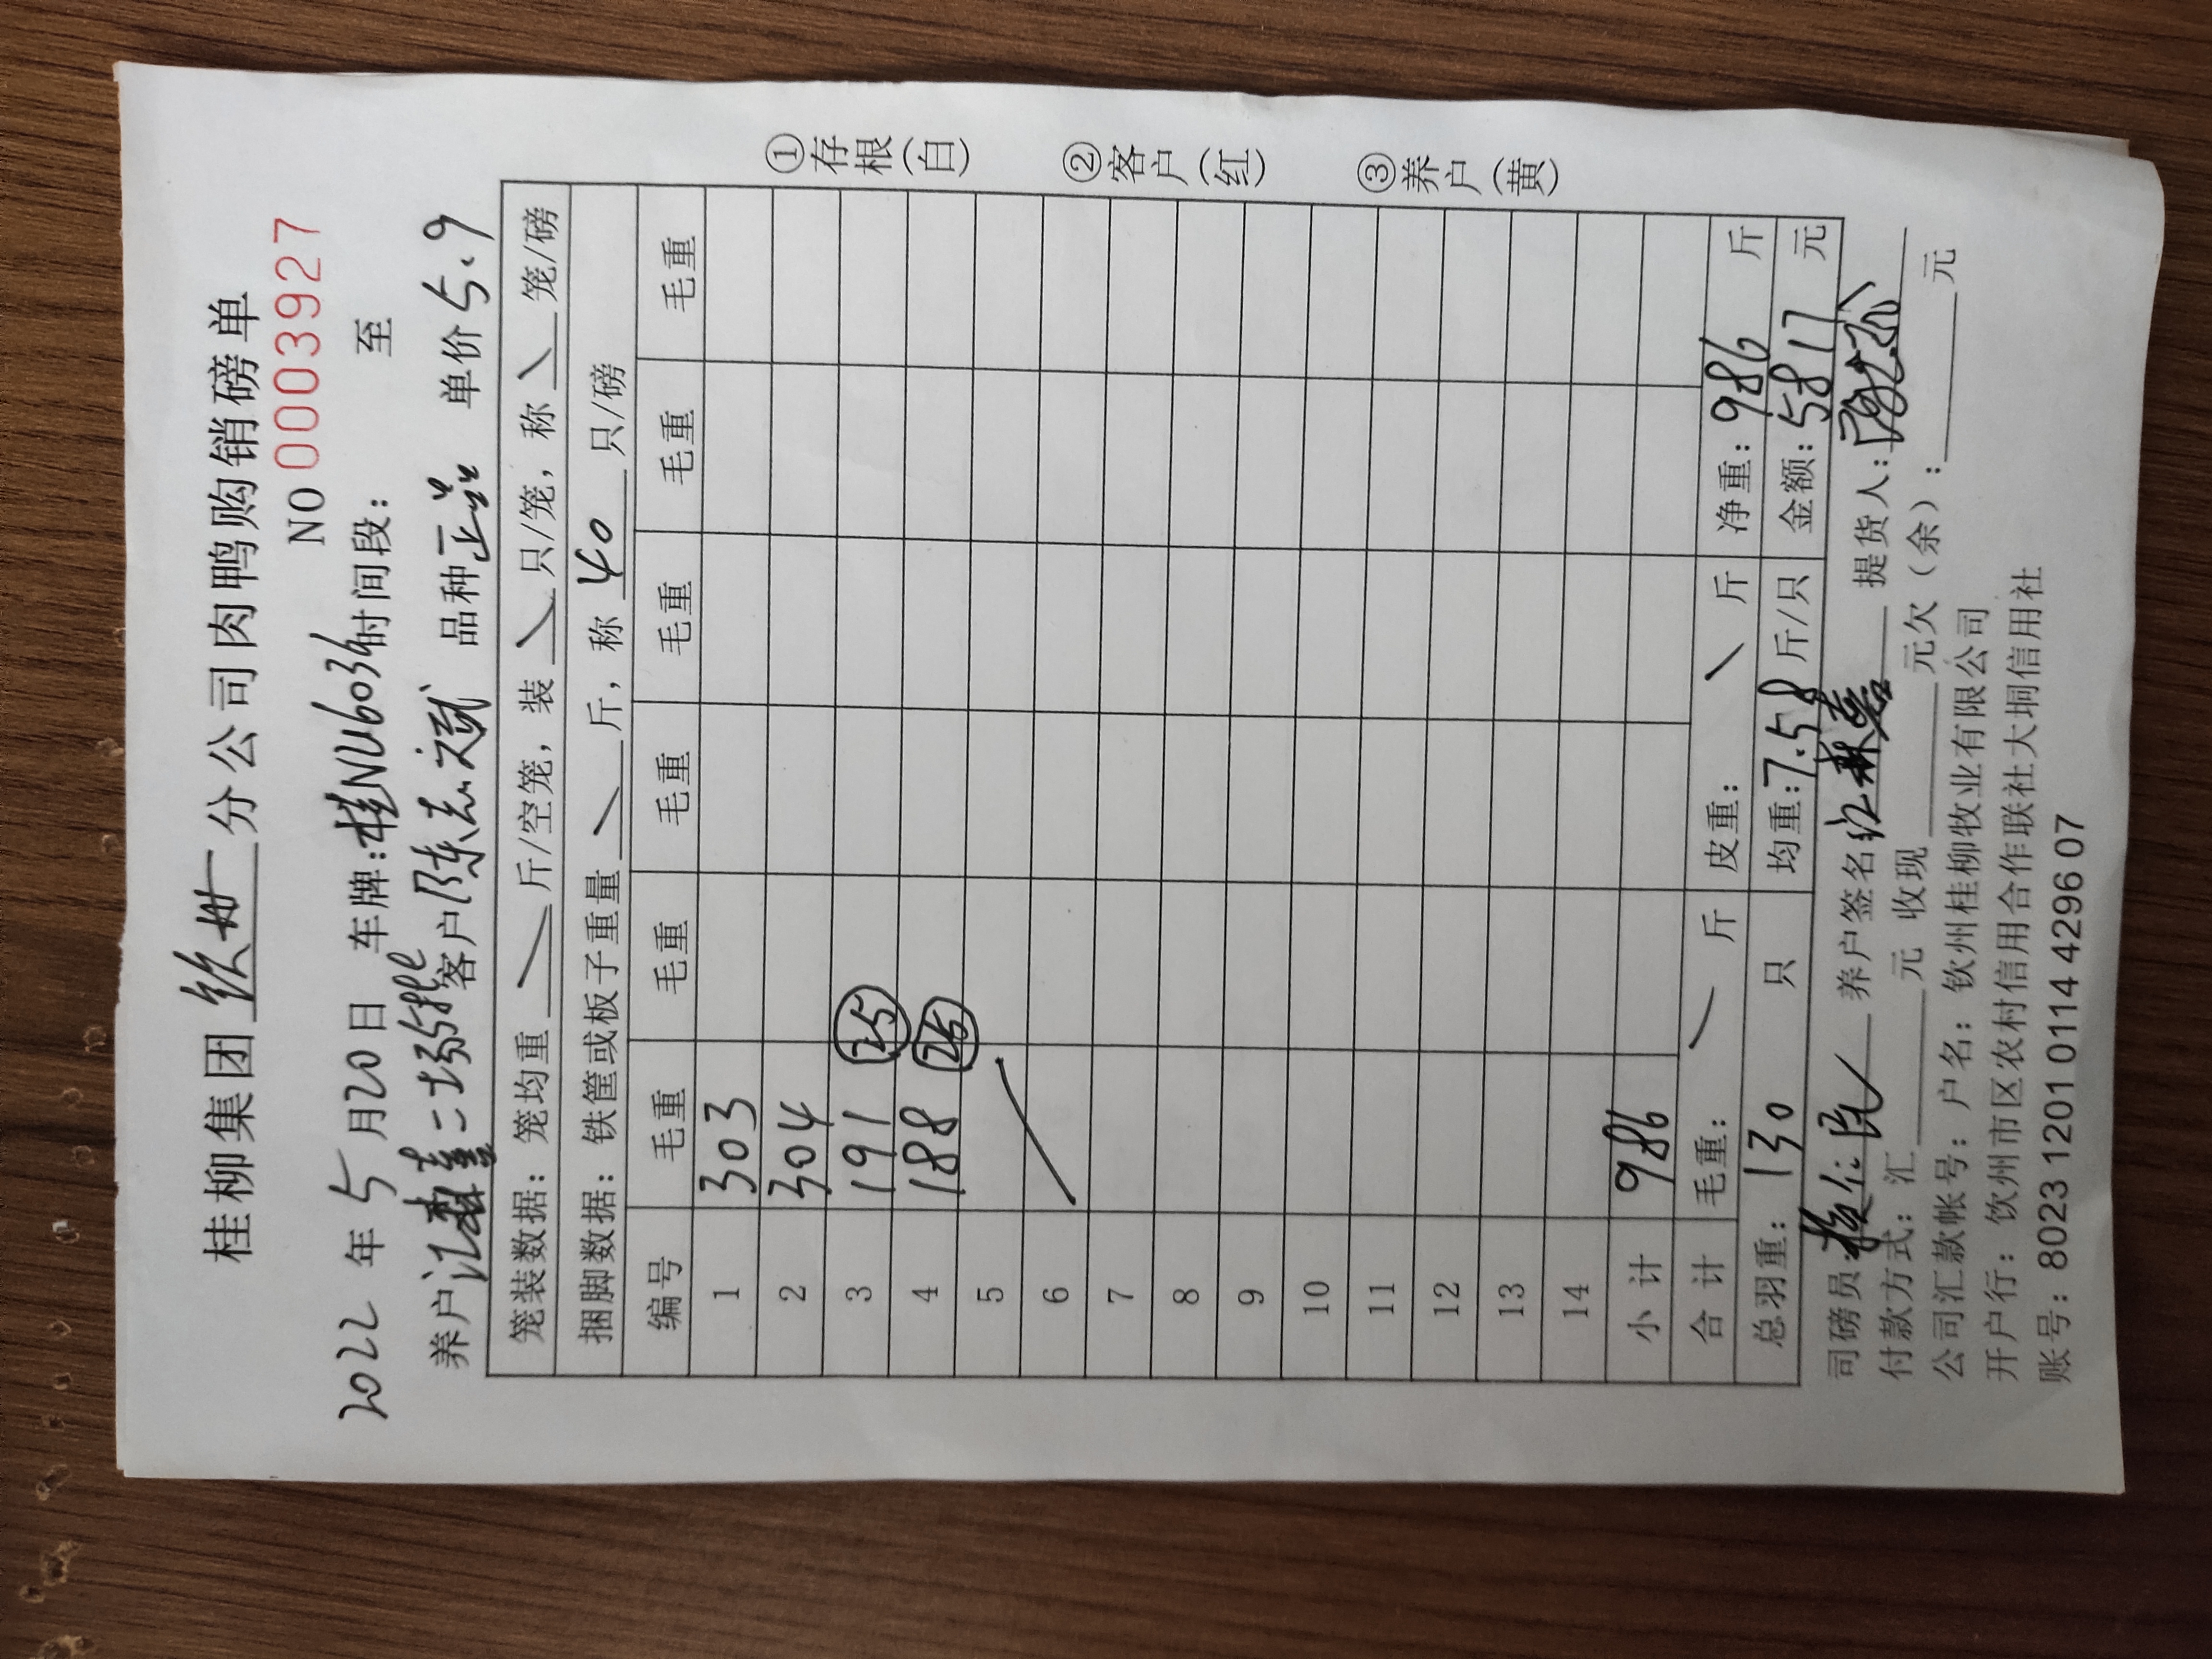 桂柳集团 钦州 分公司肉鸭购销磅单
NO 0003927
2022 年 5 月 20 日 车牌:桂NU6036 时间段: 至
养户 江 二场 客户 陈志斌 品种 正品 单价 5.9
笼装数据: 笼均重 斤/空笼, 装 只/笼, 称 笼/磅
捆脚数据: 铁筐或板子重量 斤, 称 40 只/磅
编号 毛重 毛重 毛重 毛重 毛重 毛重
1 303
2 304
3 191 25
4 188 25
5
6
7
8
9
10
11
12
13
14
小计 986
合计 毛重: 斤 皮重: 斤 净重: 986 斤
总羽重: 130 只 均重: 7.58 斤/只 金额: 5817 元
司磅员 养户签名 江 提货人:
付款方式: 汇 元 收现 元欠(余): 元
公司汇款帐号: 户名: 钦州桂柳牧业有限公司
开户行: 钦州市区农村信用合作联社大垌信用社
账号: 8023 1201 0114 4296 07
①存根(白)
②客户(红)
③养户(黄)